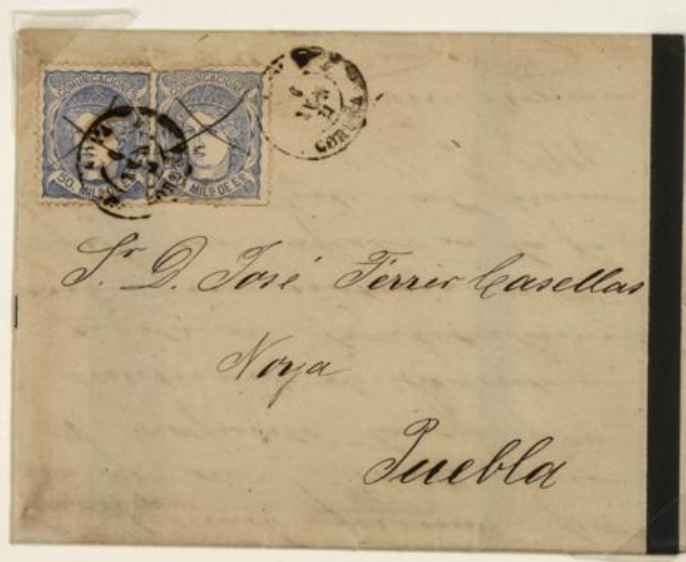 COMUNICACIONES COMUNICACIONES
50. MILS MILS DE ES
CORUÑA
Sr. D. José Ferrer Casellas
Noya
Puebla